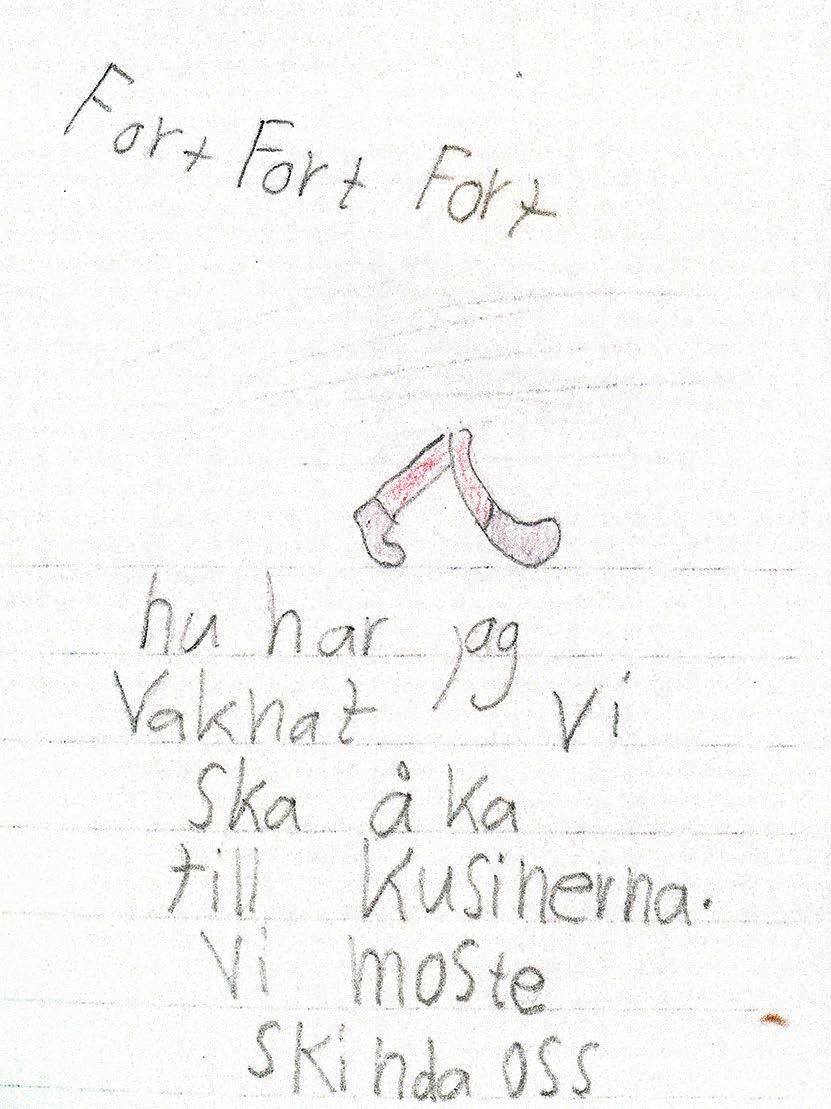 Fort Fort Fort
nu har jag
Vaknat Vi
Ska åka
till kusinerna.
Vi moste
skinda oss